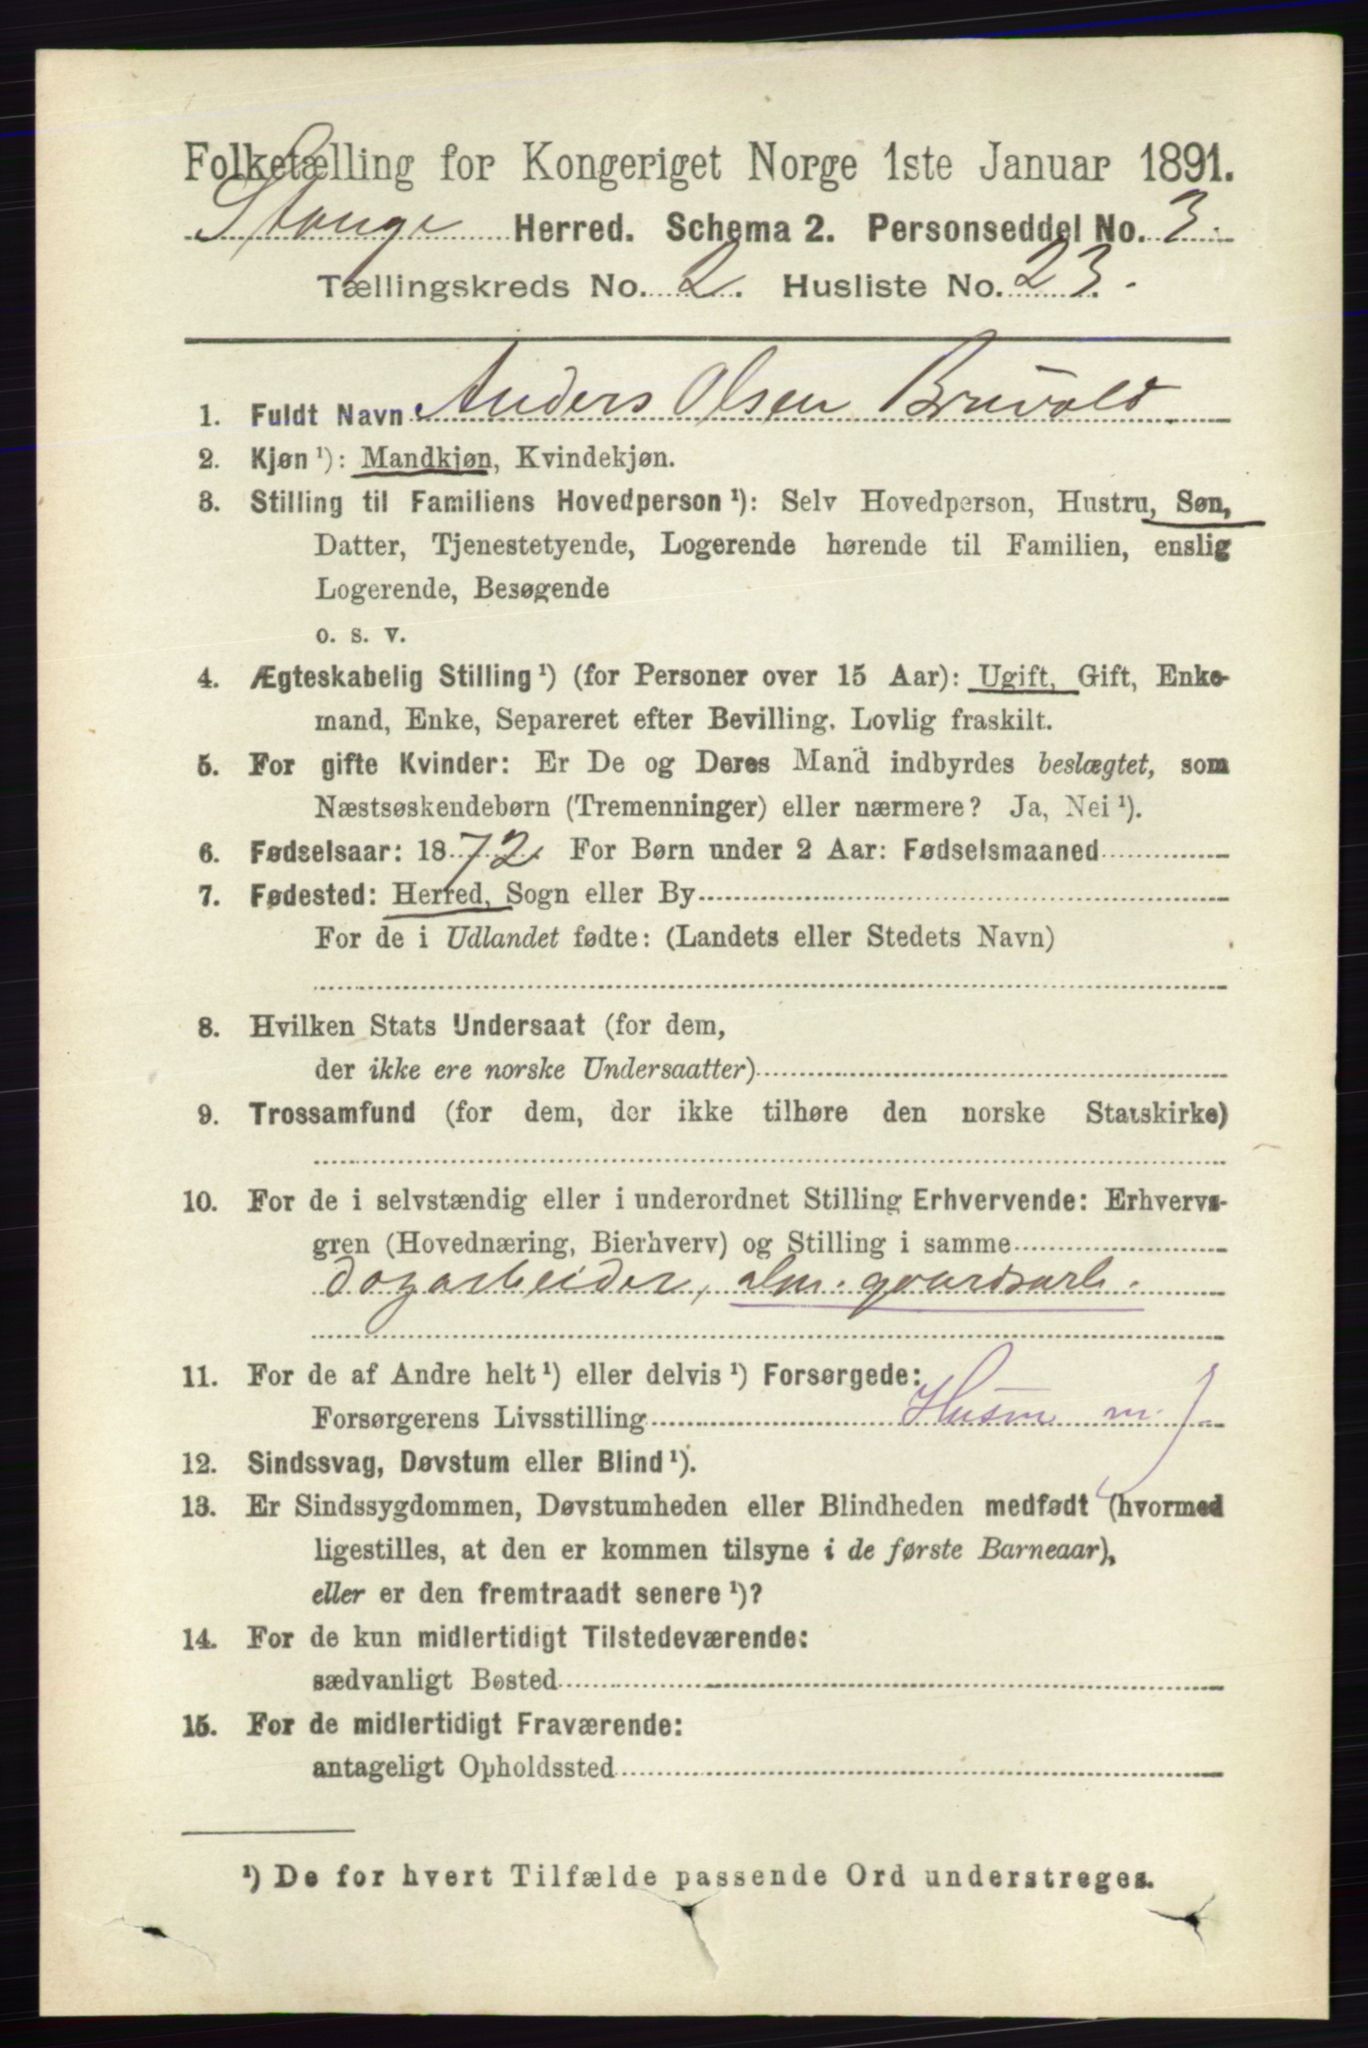 Folketælling for Kongeriget Norge 1ste Januar 1891.
Stange Herred. Schema 2. Personseddel No. 3.
Tællingskreds No. 2. Husliste No. 23.
1. Fuldt Navn Anders Olsen Bruvold
2. Kjøn ¹): Mandkjøn, Kvindekjøn.
3. Stilling til Familiens Hovedperson ¹): Selv Hovedperson, Hustru, Søn,
Datter, Tjenestetyende, Logerende hørende til Familien, enslig
Logerende, Besøgende
o. s. v.
4. Ægteskabelig Stilling ¹) (for Personer over 15 Aar): Ugift, Gift, Enke-
mand, Enke, Separeret efter Bevilling. Lovlig fraskilt.
5. For gifte Kvinder: Er De og Deres Mand indbyrdes beslægtet, som
Næstsøskendebørn (Tremenninger) eller nærmere? Ja, Nei ¹).
6. Fødselsaar: 1872. For Børn under 2 Aar: Fødselsmaaned
7. Fødested: Herred, Sogn eller By
For de i Udlandet fødte: (Landets eller Stedets Navn)
8. Hvilken Stats Undersaat (for dem,
der ikke ere norske Undersaatter)
9. Trossamfund (for dem, der ikke tilhøre den norske Statskirke)
10. For de i selvstændig eller i underordnet Stilling Erhvervende: Erhvervs-
gren (Hovednæring, Bierhverv) og Stilling i samme
dagarbeider, alm. gaardsarb.
11. For de af Andre helt ¹) eller delvis ¹) Forsørgede:
Forsørgerens Livsstilling Husm m. J
12. Sindssvag, Døvstum eller Blind ¹).
13. Er Sindssygdommen, Døvstumheden eller Blindheden medfødt (hvormed
ligestilles, at den er kommen tilsyne i de første Barneaar),
eller er den fremtraadt senere ¹)?
14. For de kun midlertidigt Tilstedeværende:
sædvanligt Bosted
15. For de midlertidigt Fraværende:
antageligt Opholdssted
¹) De for hvert Tilfælde passende Ord understreges.